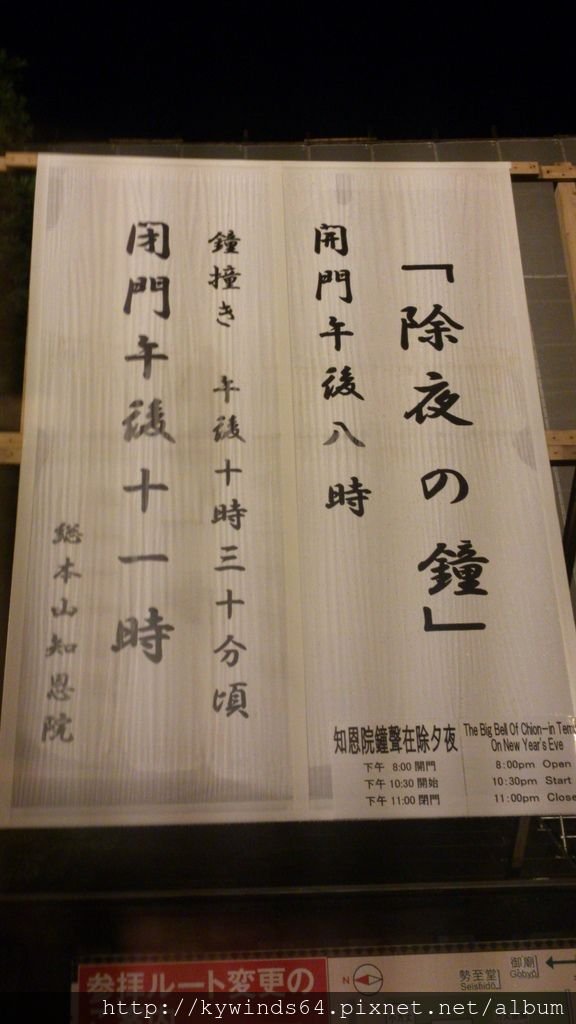 「除夜の鐘」
開門午後八時
鐘撞き 午後十時三十分頃
閉門午後十一時
総本山知恩院
知恩院鐘聲在除夕夜
下午 8:00 開門
下午 10:30 開始
下午 11:00 閉門
The Big Bell Of Chion-in Tem
On New Year's Eve
8:00pm Open
10:30pm Start
11:00pm Close
参拝ルート変更の
N
勢至堂
Seishido
御廟
Gobyo
http://kywinds64.pixnet.net/album